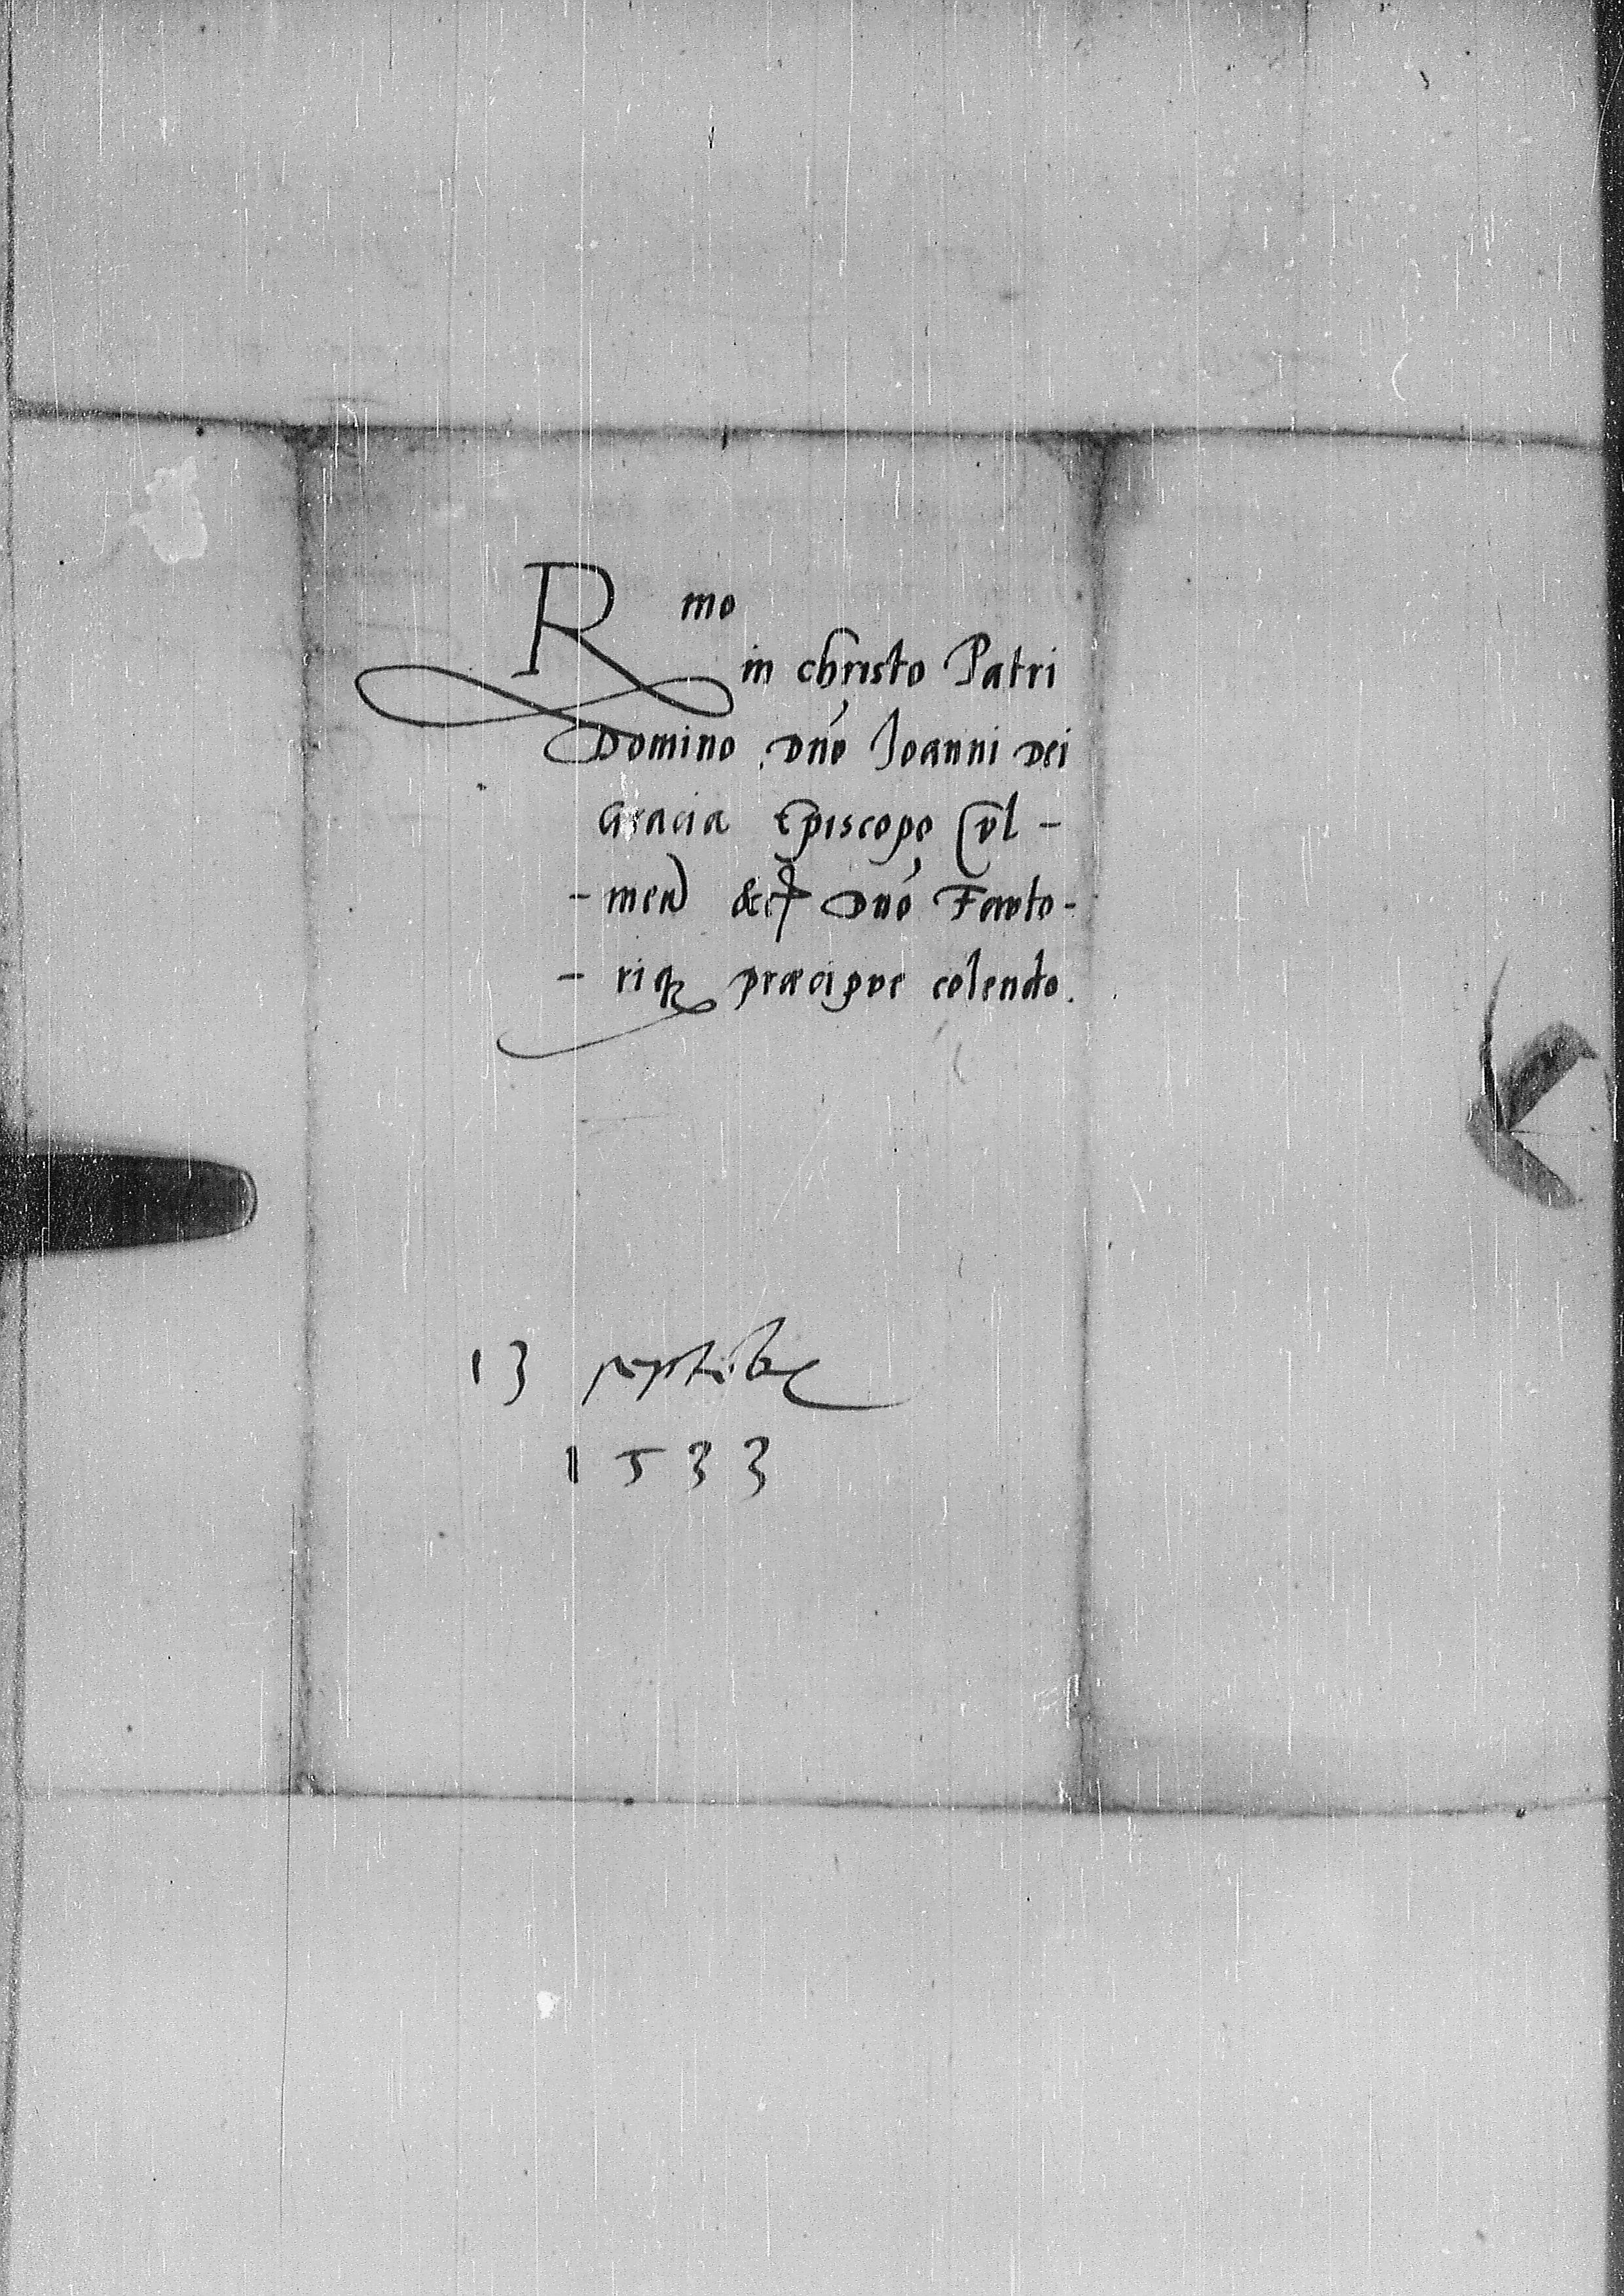 R mo
in christo Patri
Domino Dno Joanni Dei
Gracia Episcopo Cvl-
-men &c Dno Favto-
-riq præcipve colendo.
13 septeb
1533